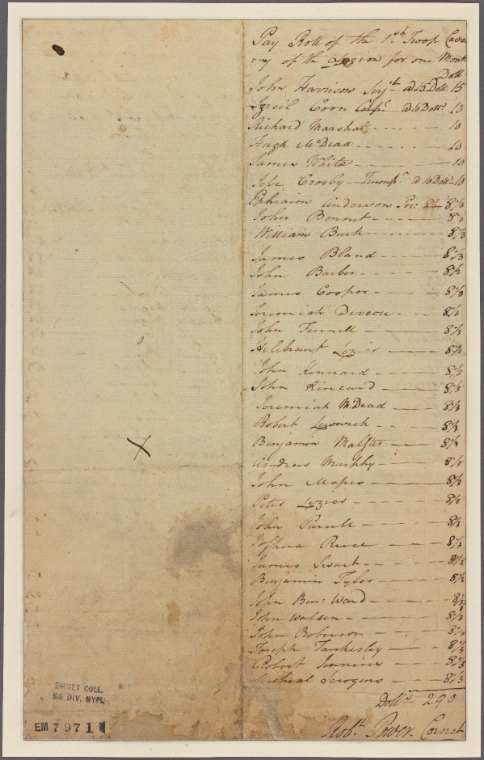 Pay Roll of the 1st Troop Caval
ry of the Legion for one Month
Doll
John Harrison Serjt a 15 Dolls 15
Izreil Coon Corpl a 10 Dolls 10
Richard Marshal 10
Hugh McDead 10
James White 10
Jesse Crosby Trumpr a 10 Dolls 10
Ephraim Anderson Pri 8 1/3
John Bonnet 8 1/3
William Burk 8 1/3
James Bland 8 1/3
John Barber 8 1/3
James Cooper 8 1/3
Jeremiah 8 1/3
John Fennell 8 1/3
Hilebrant Lozier 8 1/3
John Kennard 8 1/3
John Kincard 8 1/3
Jeremiah McDead 8 1/3
Robert 8 1/3
Benjamin 8 1/3
Andrew Murphy 8 1/3
John Mapes 8 1/3
Peter Lozier 8 1/3
John Purcell 8 1/3
Joshua Reece 8 1/3
James Swart 8 1/3
Benjamin Tylor 8 1/3
John Ward 8 1/3
John Watson 8 1/3
John Robinson 8 1/3
Joseph Tankesly 8 1/3
Robert Jennins 8 1/3
Micheal Scrogens 8 1/3
Dolls 290
Robt Power Cornet
EMMET COLL.
MS DIV. NYPL
EM 7971